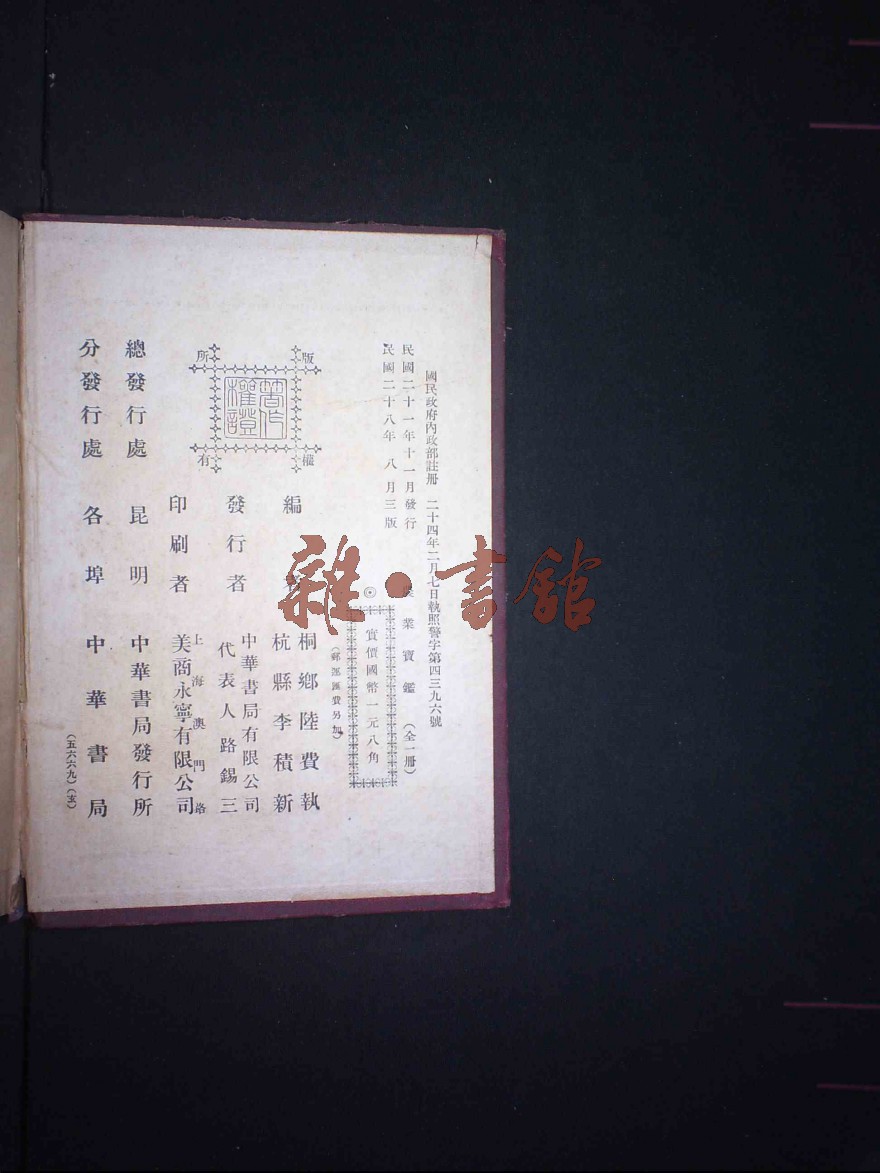 國民政府內政部註册 二十四年二月七日執照警字第四三九六號
民國二十一年十一月發行
民國二十八年 八月三版
業寶鑑(全一册)
實價國幣一元八角
(郵運匯費另加)
編
桐鄉陸費執
杭縣李積新
發行者
中華書局有限公司
代表人路錫三
印刷者
上海澳門路
美商永寧有限公司
總發行處 昆明 中華書局發行所
分發行處 各埠 中華書局
(五六六九)
版權所有
著作權證
雜·書館